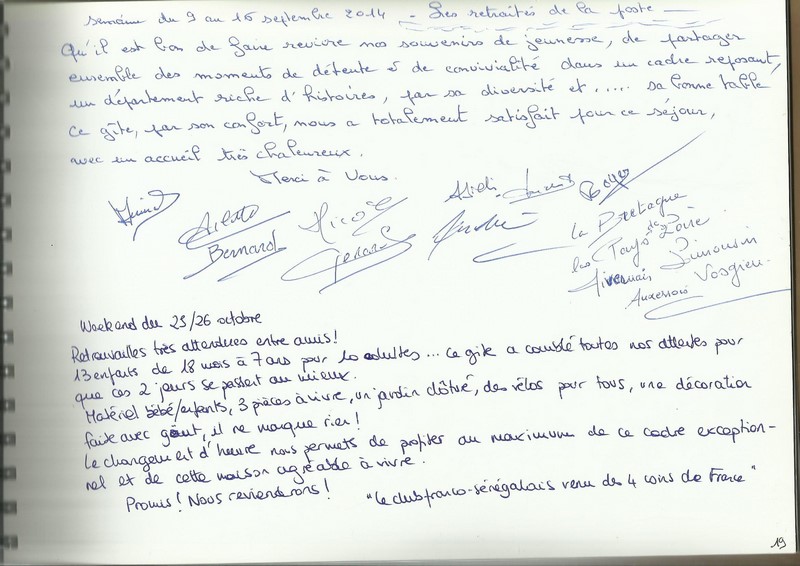 semaine du 9 au 16 septembre 2014 - Les retraités de la poste -
Qu'il est bon de faire revivre nos souvenirs de jeunesse, de partager
ensemble des moments de détente & de convivialité dans un cadre reposant,
un département riche d'histoires, par sa diversité et ..... sa bonne table
Ce gîte, par son confort, nous a totalement satisfait pour ce séjour,
avec un accueil très chaleureux.
Merci à Vous.
Arlette
Nicole
Bernard
Gérard
André
la Bretagne
les Pays de la Loire
Nivernais Limousin
Auxerrois Vosgien.
Weekend du 25/26 octobre
Retrouvailles très attendues entre amis!
13 enfants de 18 mois à 7 ans pour 10 adultes... ce gîte a comblé toutes nos attentes pour
que ces 2 jours se passent au mieux.
Matériel bébé/enfants, 3 pièces à vivre, un jardin clôturé, des vélos pour tous, une décoration
faite avec goût, il ne manque rien!
Le changement d'heure nous permets de profiter au maximum de ce cadre exception-
nel et de cette maison agréable à vivre.
Promis! Nous reviendrons!
"Le club franco-sénégalais venu des 4 coins de France"
19